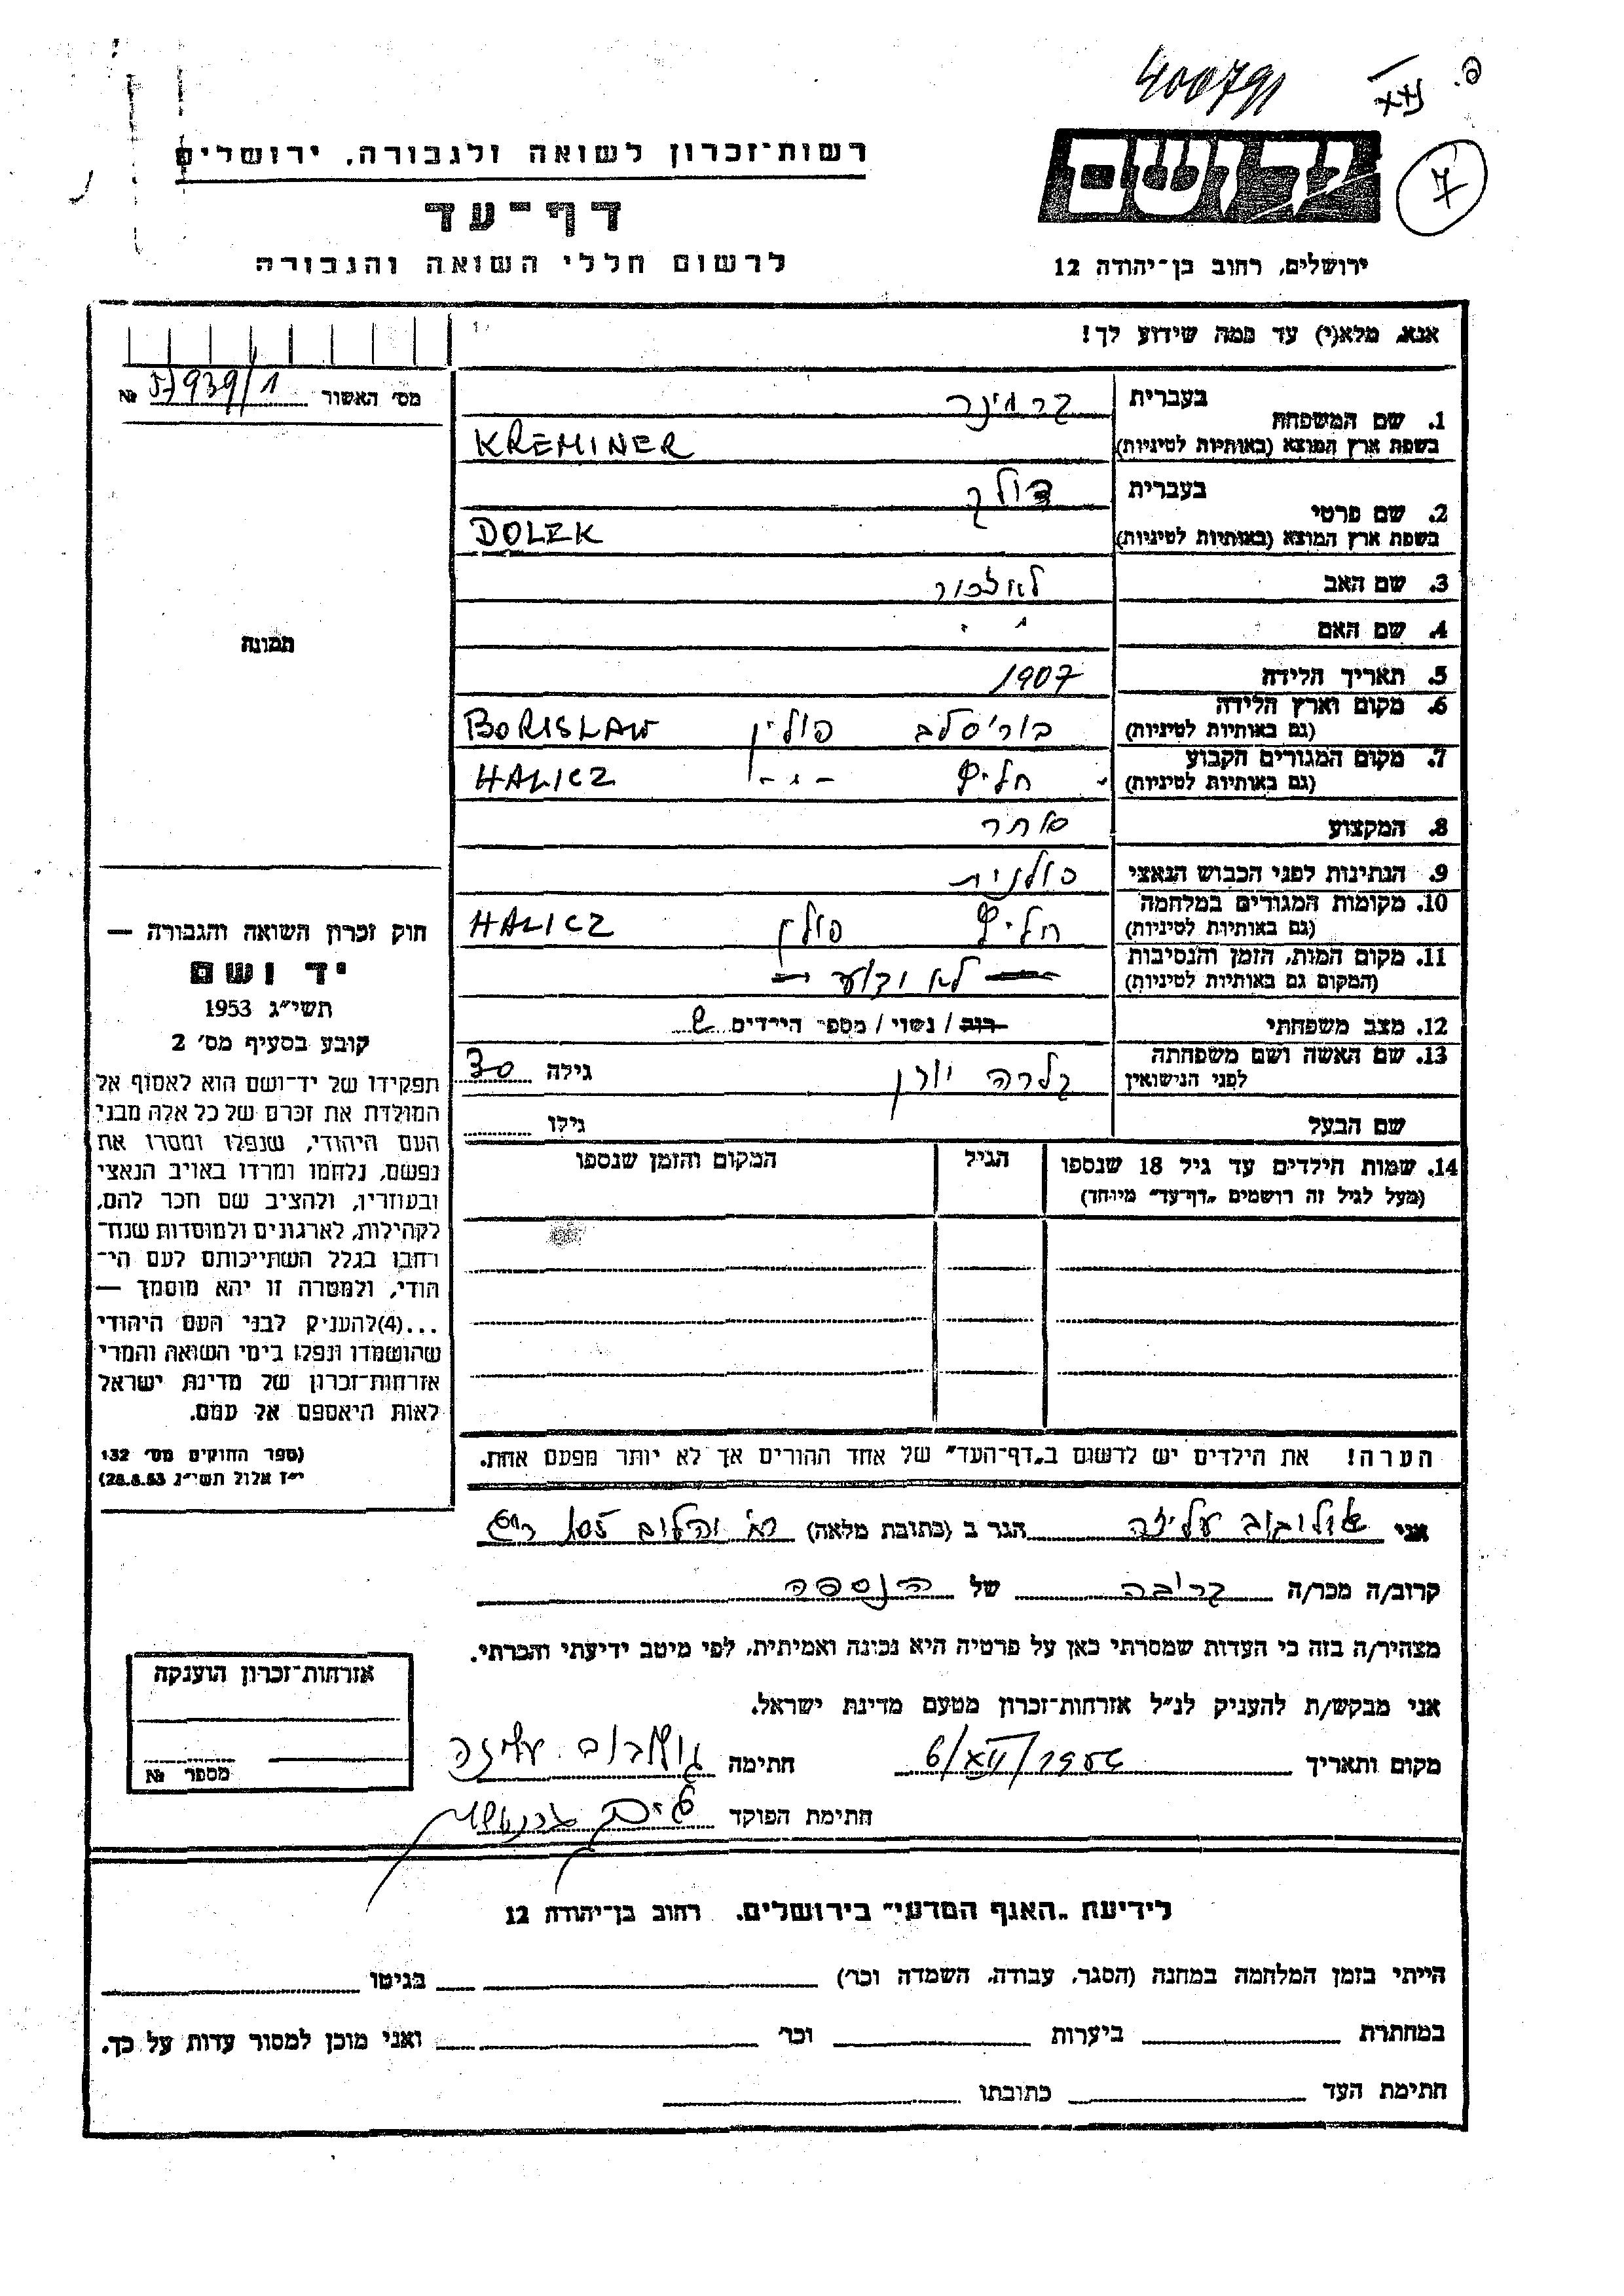 400791
רשות־זכרון לשואה ולגבורה, ירושלים
דף־עד
לרשום חללי השואה והגבורה
יד ושם
7
ירושלים, רחוב בן־יהודה 12
אנא, מלא(י) עד כמה שידוע לך!
מס׳ האשור 57939/1 №
1. שם המשפחה
בעברית קרמינר
בשפת ארץ המוצא (באותיות לטיניות) KREMINER
2. שם פרטי
בעברית דולק
בשפת ארץ המוצא (באותיות לטיניות) DOLEK
3. שם האב לא זכור
4. שם האם
5. תאריך הלידה 1907
6. מקום וארץ הלידה בוריסלב פולין BORISLAW
(גם באותיות לטיניות)
7. מקום המגורים הקבוע חליץ -"- HALICZ
(גם באותיות לטיניות)
8. המקצוע סוחר
9. הנתינות לפני הכבוש הנאצי פולנית
10. מקומות המגורים במלחמה חליץ פולין HALICZ
(גם באותיות לטיניות)
11. מקום המות, הזמן והנסיבות לא ידוע
(המקום גם באותיות לטיניות)
12. מצב משפחתי רוק / נשוי / מספר הילדים
13. שם האשה ושם משפחתה קלרה יורן גילה 30
לפני הנישואין
שם הבעל גילו
14. שמות הילדים עד גיל 18 שנספו הגיל המקום והזמן שנספו
(מעל לגיל זה רושמים „דף־עד״ מיוחד)
הערה! את הילדים יש לרשום ב„דף־העד״ של אחד ההורים אך לא יותר מפעם אחת.
תמונה
חוק זכרון השואה והגבורה —
יד ושם
תשי״ג 1953
קובע בסעיף מס׳ 2
תפקידו של יד־ושם הוא לאסוף אל
המולדת את זכרם של כל אלה מבני
העם היהודי, שנפלו ומסרו את
נפשם, נלחמו ומרדו באויב הנאצי
ובעוזריו, ולהציב שם וזכר להם,
לקהילות, לארגונים ולמוסדות שנח־
רבו בגלל השתייכותם לעם הי־
הודי, ולמטרה זו יהא מוסמך —
...(4)להעניק לבני העם היהודי
שהושמדו ונפלו בימי השואה והמרי
אזרחות־זכרון של מדינת ישראל
לאות היאספם אל עמם.
(ספר החוקים מס׳ 132
י״ז אלול תשי״ג 28.8.53)
אני עליזה הגר ב (כתובת מלאה) 105
קרוב/ה מכר/ה קרובה של הנספה
מצהיר/ה בזה כי העדות שמסרתי כאן על פרטיה היא נכונה ואמיתית, לפי מיטב ידיעתי והכרתי.
אני מבקש/ת להעניק לנ״ל אזרחות־זכרון מטעם מדינת ישראל.
מקום ותאריך 6/XII/1956 חתימה עליזה
חתימת הפוקד
אזרחות־זכרון הוענקה
מספר №
לידיעת „האגף המדעי״ בירושלים, רחוב בן־יהודה 12
הייתי בזמן המלחמה במחנה (הסגר, עבודה, השמדה וכר׳) בגיטו
במחתרת ביערות וכר׳ ואני מוכן למסור עדות על כך.
חתימת העד כתובתו